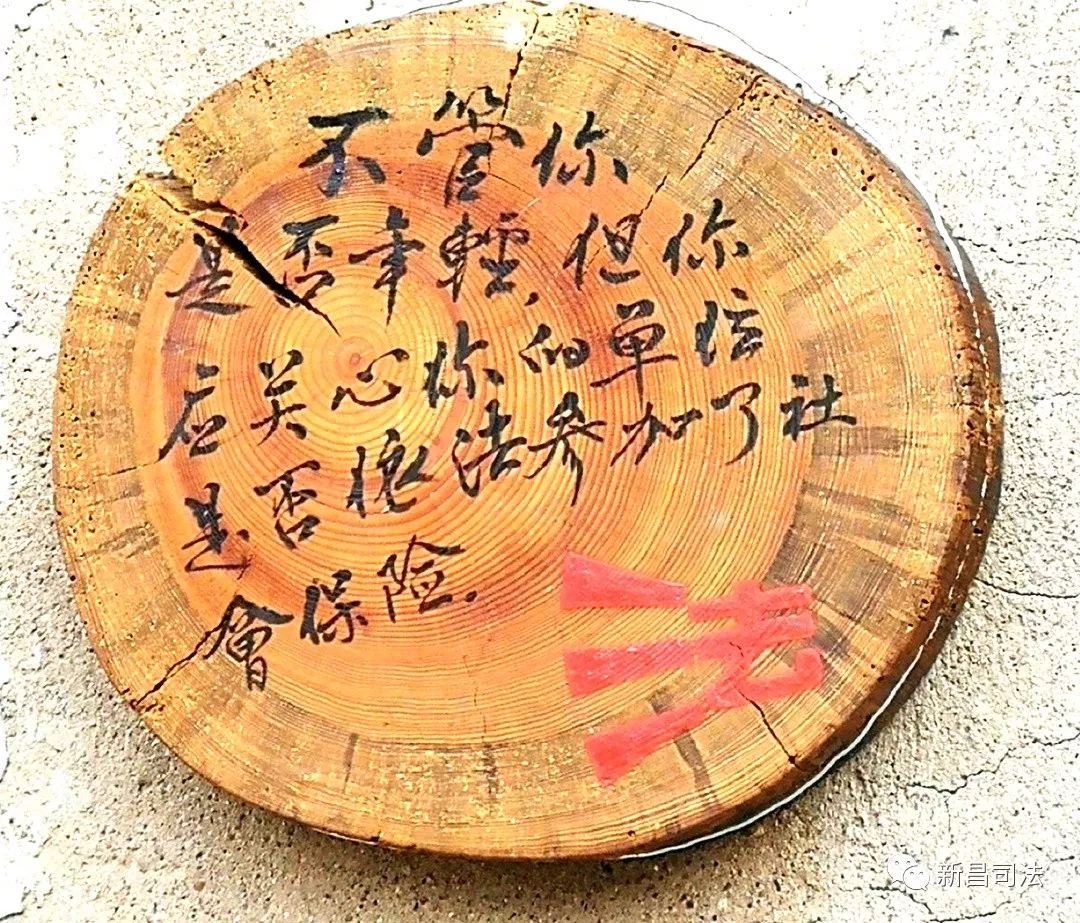 不管你
是否年輕,但你
应关心你的单位
是否依法参加了社
會保险.
新昌司法